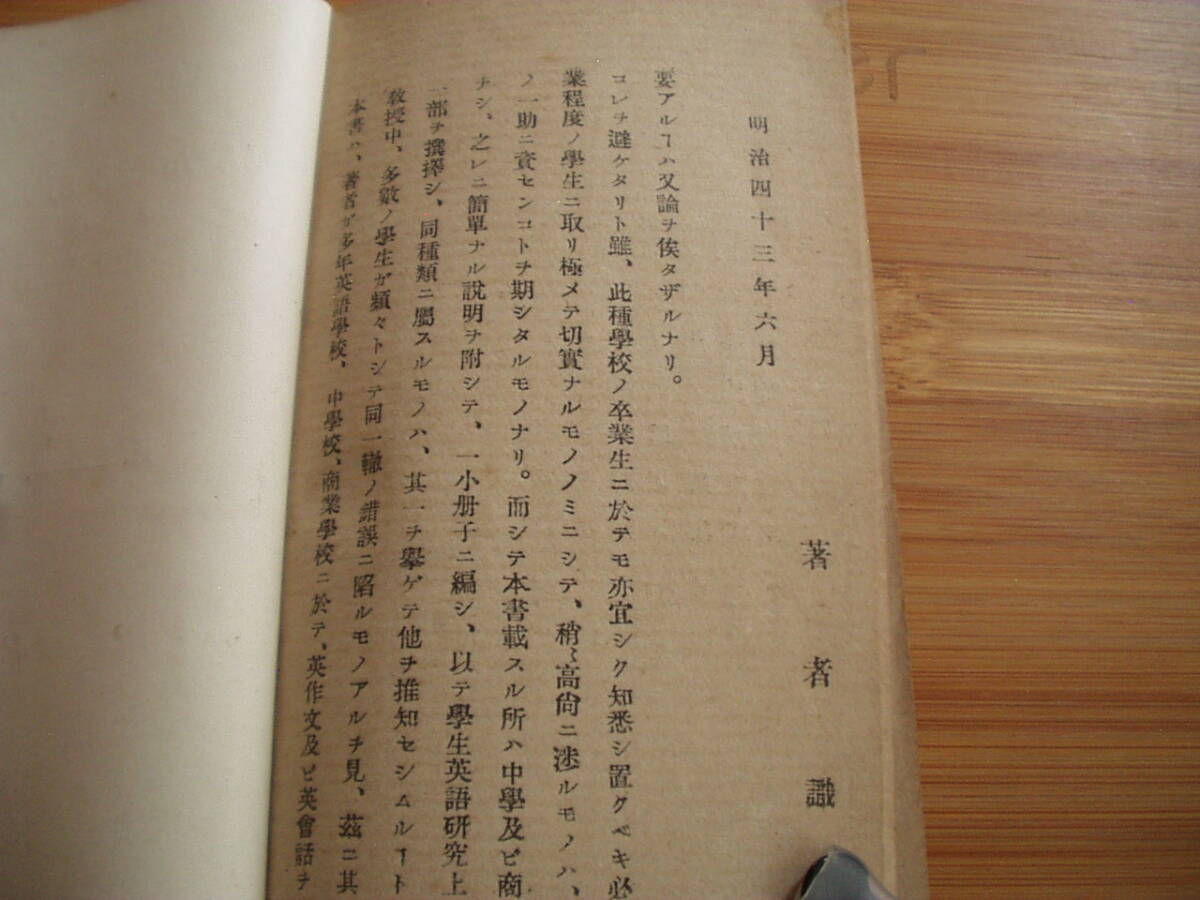 本書ハ、著者ガ多年英語學校、中學校、商業學校ニ於テ、英作文及ビ英會話ヲ
敎授中、多數ノ學生ガ類々トシテ同一轍ノ錯誤ニ陷ルモノアルヲ見、茲ニ其
一部ヲ撰擇シ、同種類ニ屬スルモノハ、其一ヲ擧ゲテ他ヲ推知セシムルヿト
ナシ、之レニ簡單ナル說明ヲ附シテ、一小册子ニ編シ、以テ學生英語硏究上
ノ一助ニ資センコトヲ期シタルモノナリ。而シテ本書載スル所ハ中學及ビ商
業程度ノ學生ニ取リ極メテ切實ナルモノノミニシテ、稍〻高尙ニ涉ルモノハ、
コレヲ避ケタリト雖、此種學校ノ卒業生ニ於テモ亦宜シク知悉シ置クベキ必
要アルヿハ又論ヲ俟タザルナリ。
明治四十三年六月
著者識